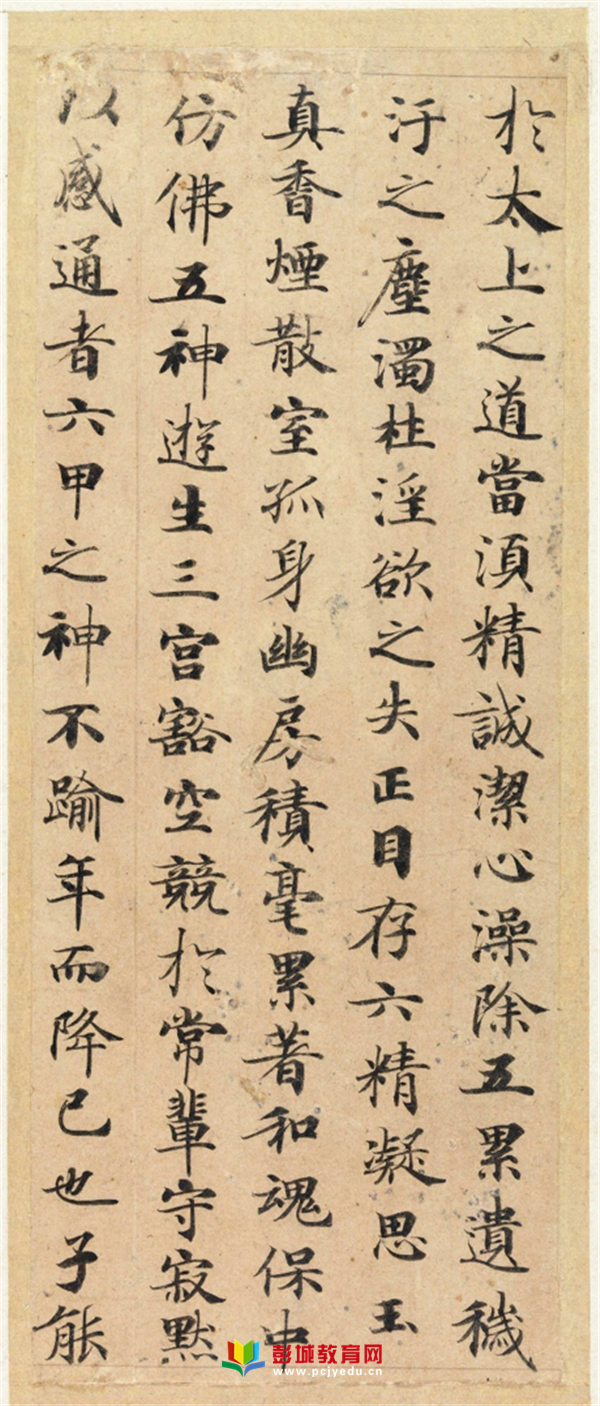 於太上之道當湏精誠潔心澡除五累遺穢
汙之塵濁杜淫欲之失正目存六精凝思玉
真香煙散室孤身幽房積毫累著和魂保中
仿佛五神遊生三宮豁空競於常輩守寂默
以感通者六甲之神不踰年而降已也子能
彭城教育网
www.pcjyedu.cn